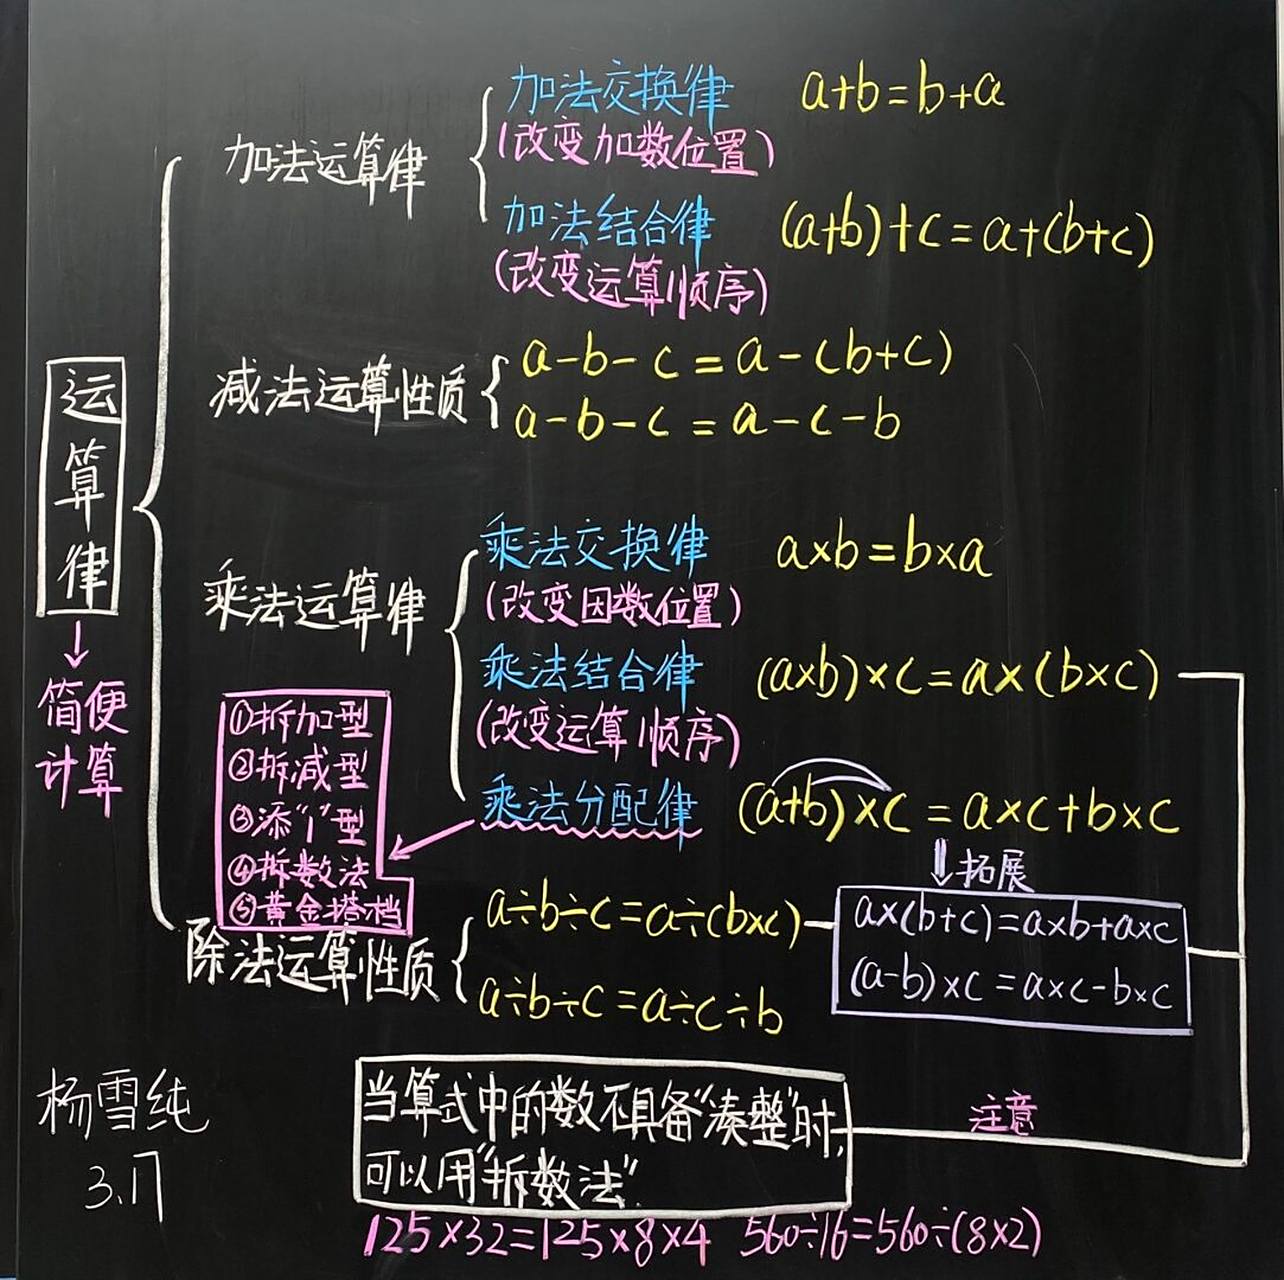 运算律
简便
计算
加法运算律
加法交换律 a+b=b+a
(改变加数位置)
加法结合律 (a+b)+c=a+(b+c)
(改变运算顺序)
减法运算性质
a-b-c=a-(b+c)
a-b-c=a-c-b
乘法运算律
乘法交换律 a×b=b×a
(改变因数位置)
乘法结合律 (a×b)×c=a×(b×c)
(改变运算顺序)
乘法分配律 (a+b)×c=a×c+b×c
①拆加型
②拆减型
③添“1”型
④拆数法
⑤黄金搭档
拓展
a×(b+c)=a×b+a×c
(a-b)×c=a×c-b×c
除法运算性质
a÷b÷c=a÷(b×c)
a÷b÷c=a÷c÷b
注意
当算式中的数不具备“凑整”时,
可以用“拆数法”.
125×32=125×8×4 560÷16=560÷(8×2)
杨雪纯
3.17